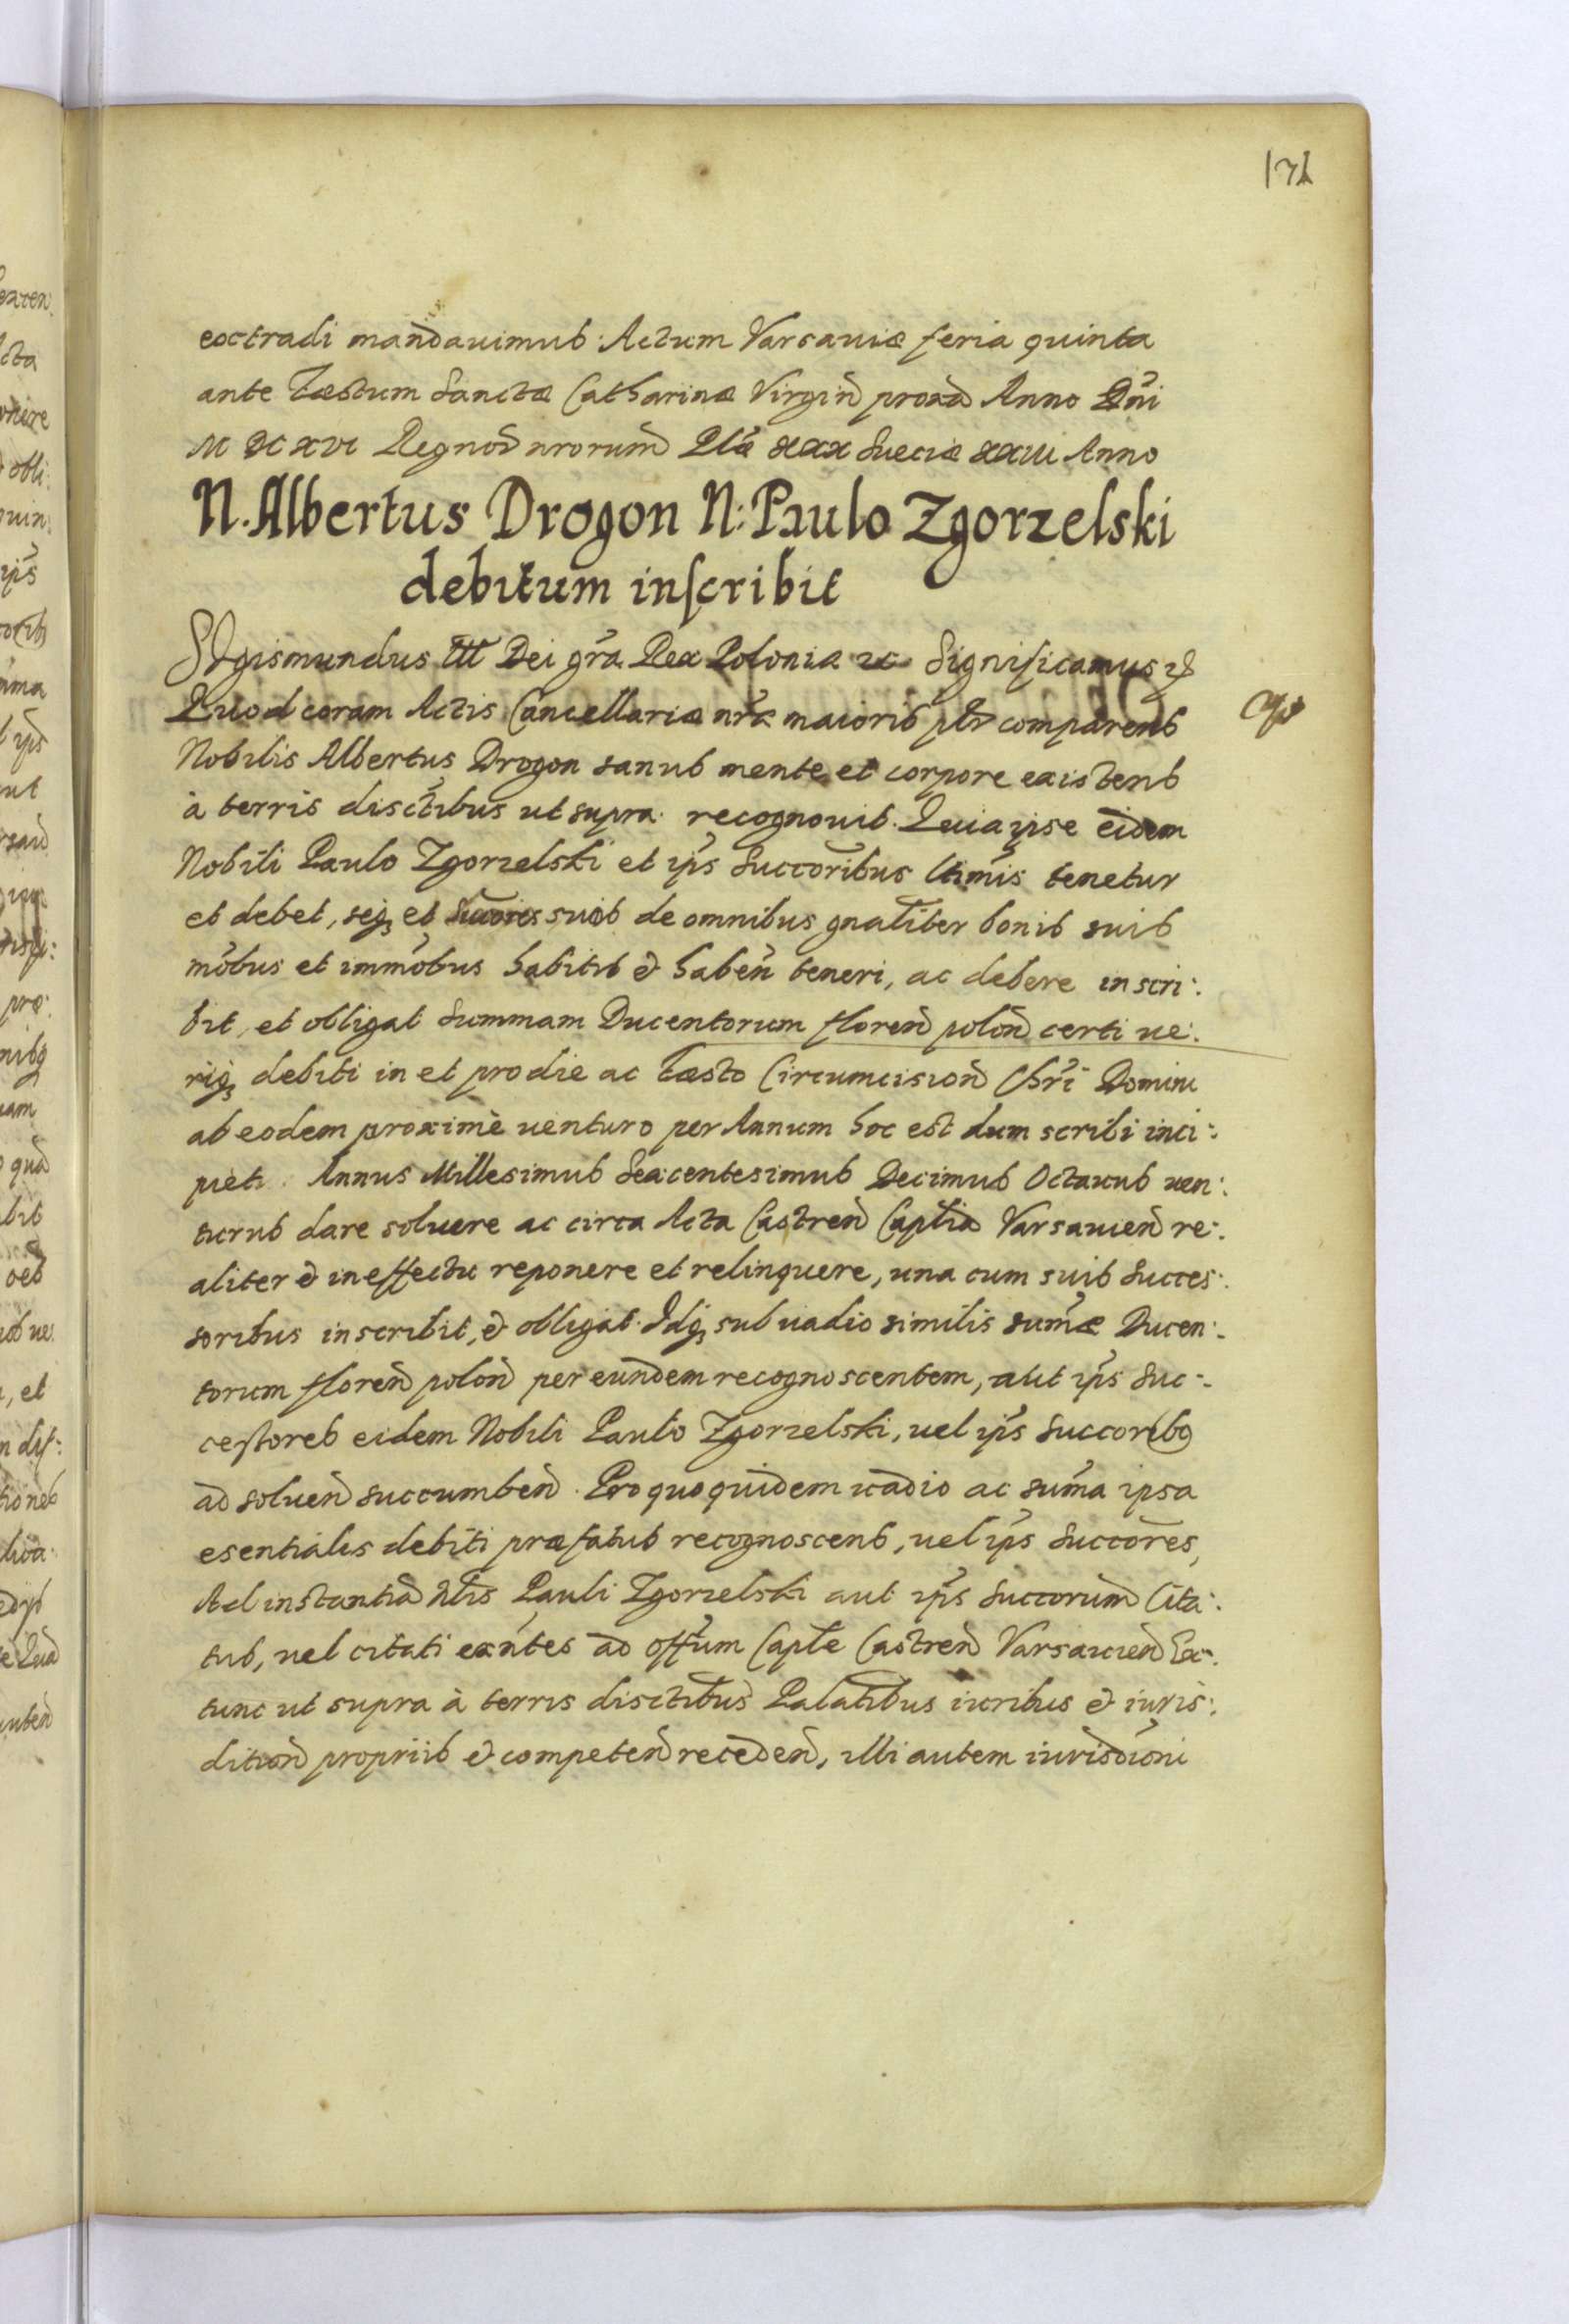 171
extradi mandauimus. Actum Varsauiæ feria quinta
ante Fæstum Sanctæ Catharinæ Virgin̄ proxā Anno Dn̄i
M DC XVI Regnor̄ nrorum̄ Plǣ XXX Sueciæ XXIII Anno
N. Albertus Drogon N: Paulo Zgorzelski
debitum inscribit
Sigismundus III Dei gr̄a Rex Polonia etc Significamus etc
Quod coram Actis Cancellariæ nr̄æ maioris pl̄r comparens
Nobilis Albertus Drogon sanus mente et corpore existens
à terris disct̄ibus ut supra. recognouit. Quia ipse eidem
Nobili Paulo Zgorzelski et ip̄s Succōribus lt̄imis tenetur
et debet, seq₃ et Succōres suos de omnibus gnāliter bonis suis
mōbus et immōbus habitis & habēn teneri, ac debere inscri:
bit, et obligat Summam Ducentorum floren̄ polon̄ certi ue:
riq₃ debiti in et pro die ac fæsto Circumcision̄ Chrī Domini
ab eodem proximè uenturo per Annum hoc est dum scribi inci:
piet. Annus Millesimus Sexcentesimus Decimus Octauus uen:
turus dare soluere ac circa Acta Castren̄ Capl̄ia Varsauien̄ re:
aliter & in effectu reponere et relinquere, una cum suis Succes:
soribus inscribit, & obligat. Idq₃ sub uadio similis sum̄æ Ducen:
torum floren̄ polon̄ per eundem recognoscentem, aut ip̄s Suc:
cessores eidem Nobili Paulo Zgorzelski, uel ip̄s Succoribus
ad soluen̄ succumben̄. Pro quo quidem uadio ac sum̄a ipsa
esentialis debiti præfatus recognoscens, uel ip̄s Succōres,
Ad instantiā N̄lis Pauli Zgorzelski aut ip̄s Succorum̄ Cita:
tus, uel citati exn̄tes ad Off̄um Capl̄e Castren̄ Varsauien̄ Ex:
tunc ut supra à terris disctībus Palatībus iuribus & iuris:
dition̄ propriis & competen̄ receden̄, illi autem iurisdiōni